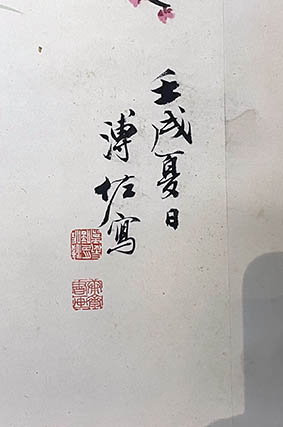 壬戌夏日
溥佐寫